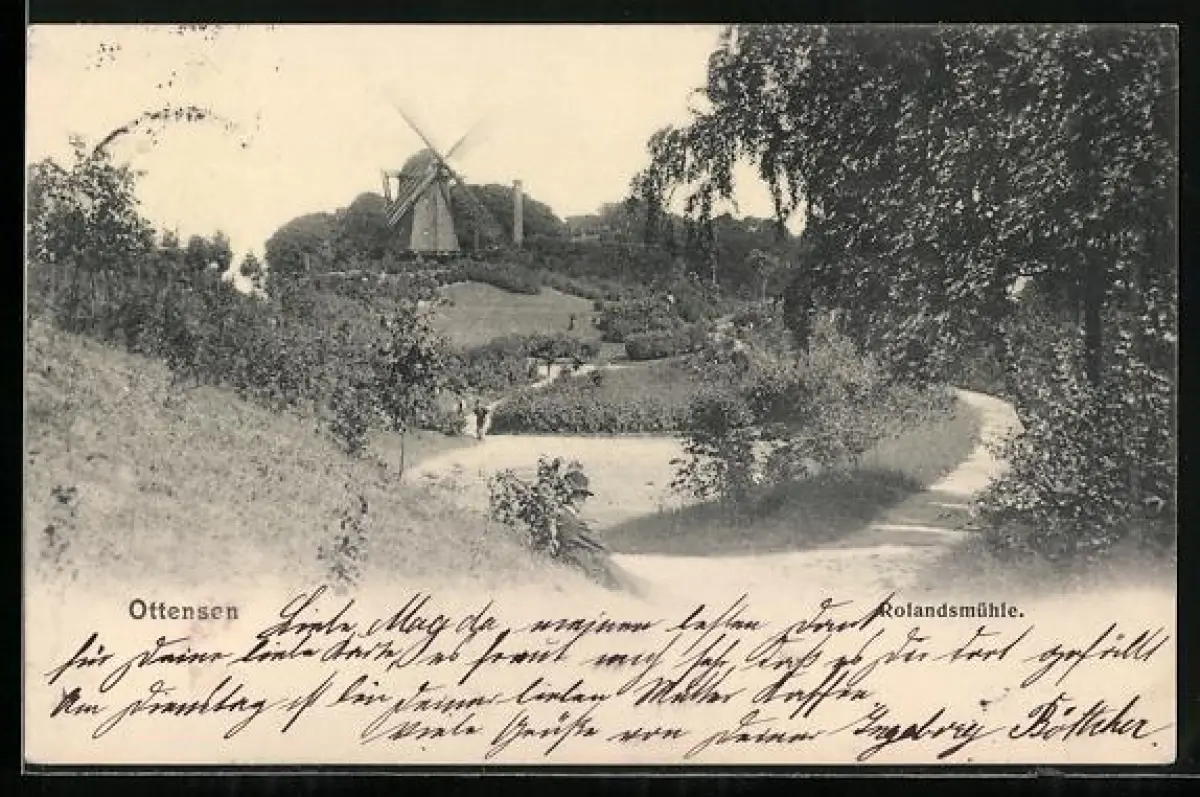 Ottensen
Rolandsmühle.
Liebe Magda, meinen besten Dank
für Deine liebe Karte, es freut mich sehr, daß es Dir dort gefällt
Am Dienstag ist bin Deiner lieben Mutter Kaffee
Viele Grüße von Deiner Ingeborg Böttcher